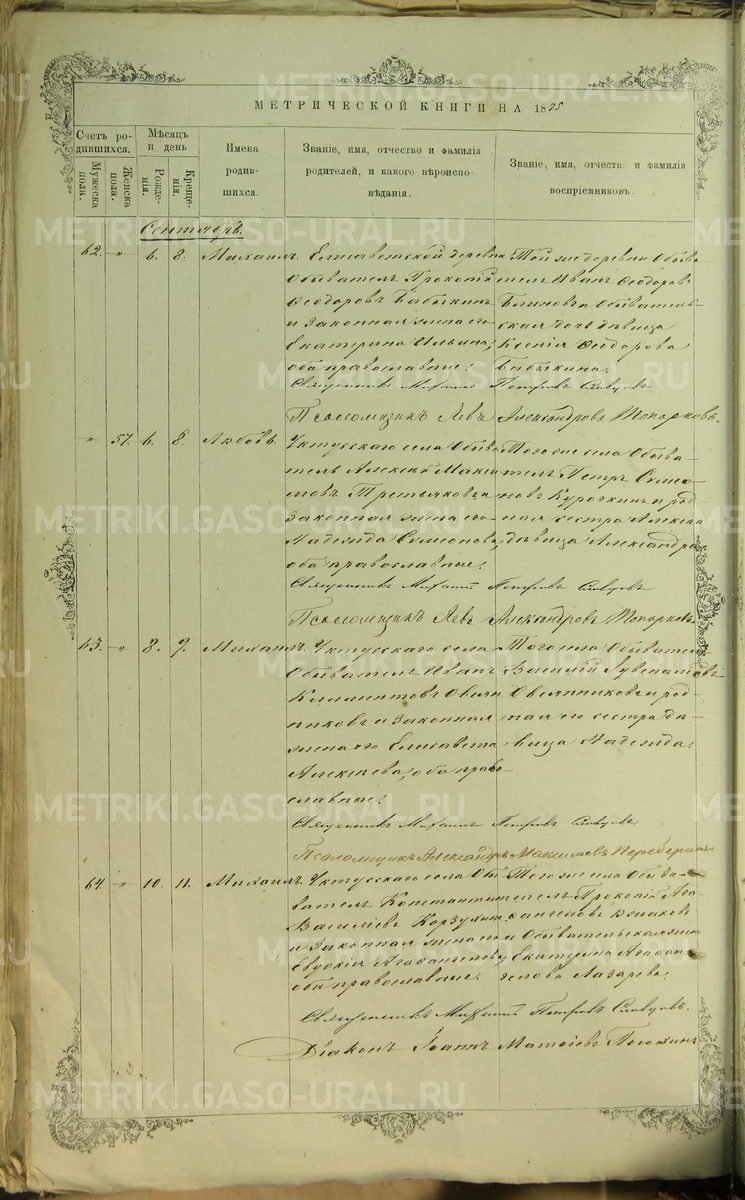 МЕТРИЧЕСКОЙ КНИГИ НА 1875
Счетъ родившихся.
Мужеска пола.
Женска пола.
Мѣсяцъ и день
Рожденія.
Крещенія.
Имена родившихся.
Званіе, имя, отчество и фамилія родителей, и какого вѣроисповѣданія.
Званіе, имя, отчество и фамилія воспріемниковъ.
Сентябрь.
62. „ 6. 8. Михаилъ.
Елисаветской деревни
Обыватель Прокопій
Ѳеодоровъ Бабыкинъ
и законная жена его
Екатерина Ильина,
оба православные.
Той же деревни Обыва-
тель Иванъ Ѳеодоровъ
Блиновъ и Обыватель-
ская дочь дѣвица
Ксенія Ѳеодорова
Бабыкина.
Священникъ Михаилъ Петровъ Славцовъ
Псаломщикъ Левъ Александровъ Топорковъ.
„ 57. 6. 8. Любовь.
Уктусскаго села Обыва-
тель Алексѣй Макси-
мовъ Третьяковъ и
законная жена его
Надежда Симеонова,
оба православные.
Того же села Обыва-
тель Петръ Симео-
новъ Курочкинъ и род-
ная сестра Алексѣя
дѣвица Александра
Священникъ Михаилъ Петровъ Славцовъ
Псаломщикъ Левъ Александровъ Топорковъ.
63. „ 8. 9. Михаилъ.
Уктусскаго села
Обыватель Иванъ
Климентовъ Овсян-
никовъ и законная
жена его Елисавета
Алексѣева, оба право-
славные.
Того села Обыватель
Василій
Овсянниковъ и род-
ная его сестра дѣ-
вица Надежда.
Священникъ Михаилъ Петровъ Славцовъ
Псаломщикъ Александръ Максимовъ
64. „ 10. 11. Михаилъ.
Уктусскаго села Обы-
ватель Константинъ
Васильевъ Корзухинъ
и законная жена его
Евдокія Агаѳангелова,
оба православные.
Того же села Обыва-
тель Прокопій Ага-
ѳангеловъ
и Обывательская жена
Екатерина Агаѳан-
гелова Лазарева.
Священникъ Михаилъ Петровъ Славцовъ.
Діаконъ Іоаннъ Матѳіевъ
METRIKI.GASO-URAL.RU